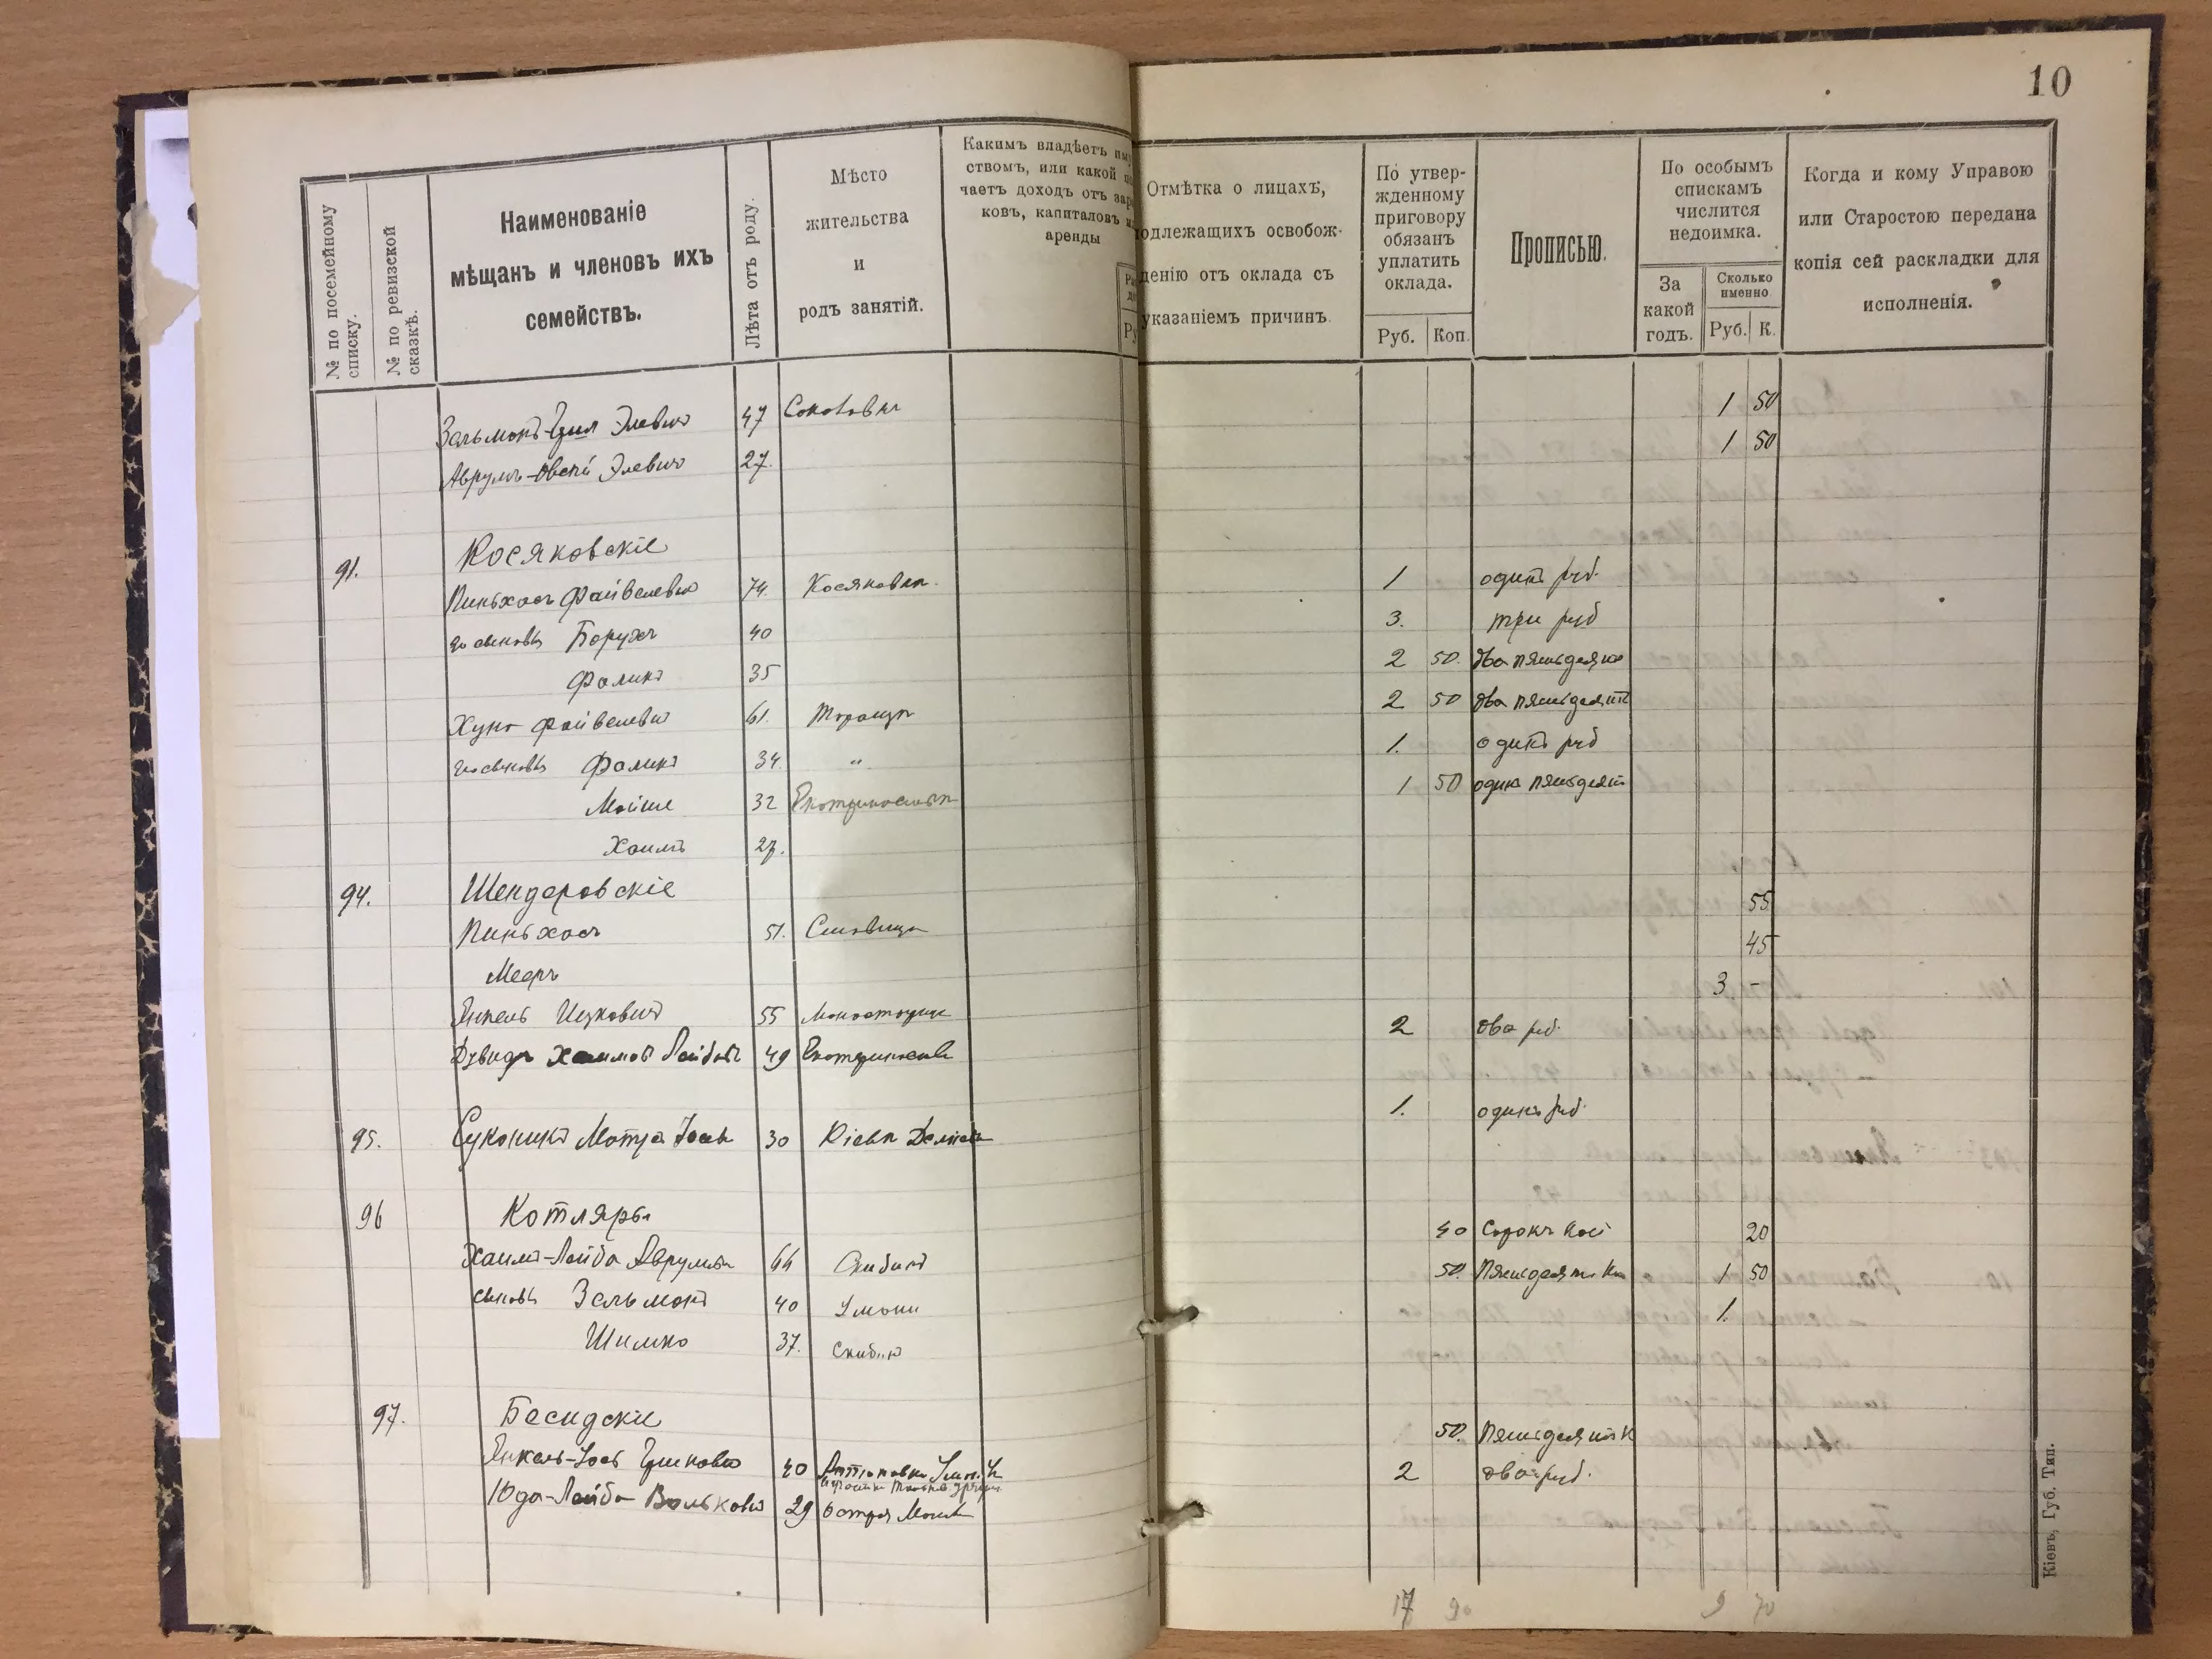 10
№ по посемейному списку.
№ по ревизской сказкѣ.
Наименованіе
мѣщанъ и членовъ ихъ
семействъ.
Лѣта отъ роду.
Мѣсто
жительства
и
родъ занятій.
Какимъ владѣетъ
ствомъ, или какой
чаетъ доходъ отъ
ковъ, капиталовъ
аренды
Отмѣтка о лицахъ,
одлежащихъ освобож-
денію отъ оклада съ
указаніемъ причинъ.
По утвер-
жденному
приговору
обязанъ
уплатить
оклада.
Руб. Коп.
Прописью.
По особымъ
спискамъ
числится
недоимка.
За
какой
годъ.
Сколько
именно
Руб. К.
Когда и кому Управою
или Старостою передана
копія сей раскладки для
исполненія.
Зельманъ Элевъ 47 Соколовка 1 50
Аврумъ Элевичъ 27. 1 50
91. Косяковскіе
Пиньхасъ Файвелевъ 74. Косяковка 1 одинъ руб.
сыновья Борухъ 40 3. три руб
Фаликъ 35 2 50. два пятьдесят
Хуна Файвелевъ 61. Тараща 2 50 два пятьдесят
сыновья Фаликъ 34. " 1. одинъ руб
Мойше 32 1 50 один пятьдесят
Хаимъ 27.
94. Шендеровскіе
Пиньхасъ 51. Ставище 55
Мееръ 45
Янкель Ицковичъ 55 Монастырище 3. -
Дувидъ Хаимов Лейбов 49 2 два руб.
95. Суконикъ 30 Кіевъ 1. одинъ руб.
96 Котляры
Хаимъ-Лейба Аврумов 66 Скибинъ 40 Сорокъ коп 20
сыновья Зельманъ 40 Умань 50. Пятьдесят к 1 50
Шимко 37. Скибин 1.
97. Бесидскіе
Янкель-Іось 40 50. Пятьдесят к
Юда-Лейба Вольковъ 29 2 два руб.
17 90 9 70
Кіевъ, Губ. Тип.